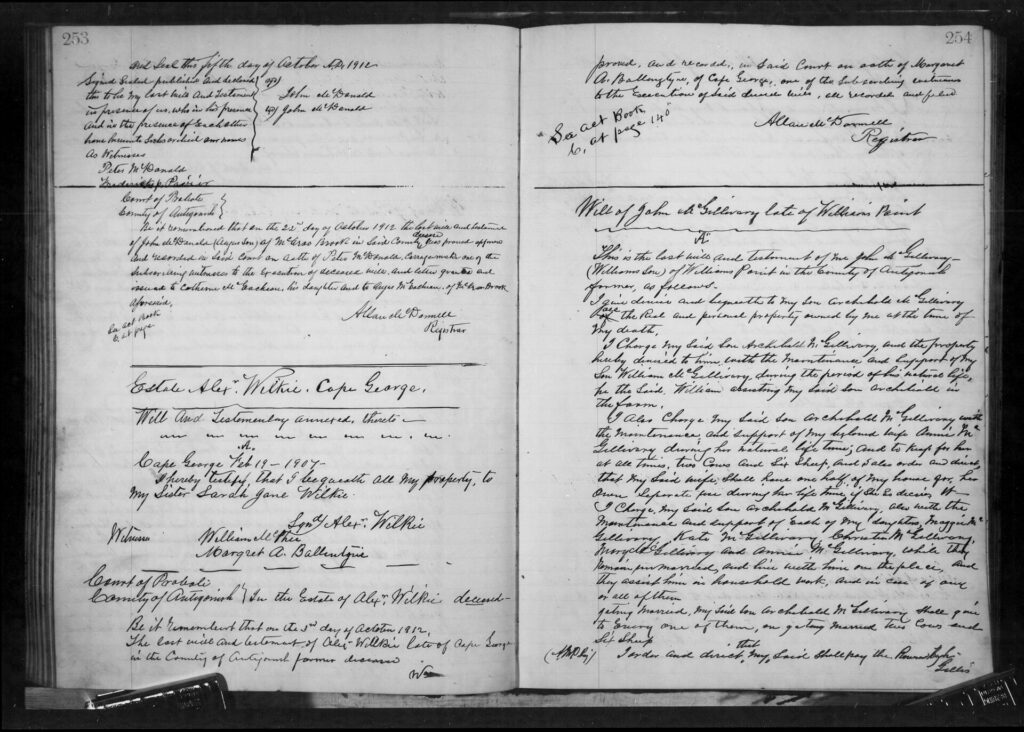 253
and Seal this fifth day of October A.D. 1912
Signed Sealed published and declared
the to be my last will and Testament
in presence of us, who in his presence
and in the presence of each other
have hereunto subscribed our names
as Witnesses
Peter McDonald
John McDonald
John McDonald
Court of Probate
County of Antigonish
Be it remembered that on the 22nd day of October 1912 the last will and testament
of John McDonald (Angus Son) of McAras Brook in said County deceased was proved approved
and recorded in said Court on oath of Peter McDonald, one of the
subscribing witnesses to the execution of deceased will, and letters granted and
issued to Catherine McEachern, his daughter and to Angus McEachern, of McAras Brook
aforesaid.
See act Book
6, at page
Allan McDonnell
Registrar
Estate Alexr. Wilkie. Cape George.
Will and Testamentary annexed thereto
A.
Cape George Feb 19 - 1907 -
I hereby testify, that I bequeath all my property, to
my Sister Sarah Jane Wilkie.
Sgnd/ Alex. Wilkie
Witness William McPhee
Margret A. Ballentyne
Court of Probate
County of Antigonish } In the Estate of Alexr. Wilkie deceased -
Be it rememberd that on the 3rd day of October 1912,
The last will and testament of Alexr Wilkie late of Cape George
in the County of Antigonish farmer deceased
Was
254
proved, and recorded, in Said Court on oath of Margaret
A. Ballentyne, of Cape George, one of the Subscribing witnesses
to the Execution of Said deceased will, all recorded and filed
"See act Book
6, at page 140"
Allan McDonnell
Registrar
Will of John McGillivary late of Williams Point
"A"
This is the last will and testament of me John McGillivary -
(Williams Son) of Williams Point in the County of Antigonish
farmer, as follows -
I give devise and bequeath to my Son Archibald McGillivary
all the Real and personal property owned by me at the time of
my death.
I Charge my said Son Archibald McGillivary, and the property
hereby devised to him, with the maintenance and support of my
Son William McGillivary during the period of his natural life,
he the said William assisting my said son Archibald in
the farm.
I Also Charge my said son Archibald McGillivary with
the maintenance and support of my beloved wife Annie Mc
Gillivary during her natural life time; and to keep for her
at all times, two Cows and Six Sheep, and I also order and direct
that my said wife shall have one half, of my house for, her
own separate use during her life time if she so desires it -
I Charge, my said son Archibald McGillivary, also with the
maintenance and support of each of my daughters, Maggie Mc
Gillivary, Kate McGillivary, Christie McGillivary,
Mary McGillivary and Annie McGillivary, while they
remain unmarried, and live with him on the place, and
they assist him in household work, and in case of any
or all of them
getting married, my said son Archibald McGillivary shall give
to every one of them, on getting married two Cows and
Six Sheep
I order and direct, that my said shall pay the
Gillis